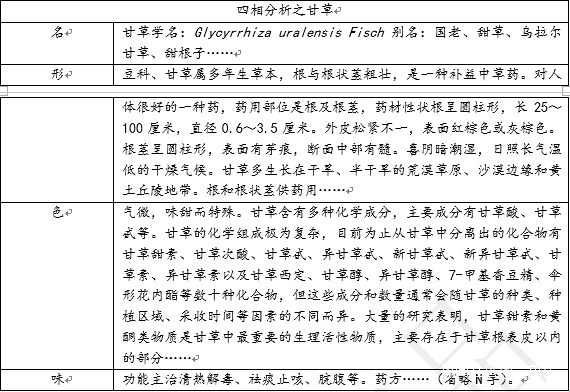 四相分析之甘草
名 甘草学名：Glycyrrhiza uralensis Fisch 别名：国老、甜草、乌拉尔
甘草、甜根子……
形 豆科、甘草属多年生草本，根与根状茎粗壮，是一种补益中草药。对人
体很好的一种药，药用部位是根及根茎，药材性状根呈圆柱形，长 25～
100 厘米，直径 0.6～3.5 厘米。外皮松紧不一，表面红棕色或灰棕色。
根茎呈圆柱形，表面有芽痕，断面中部有髓。喜阴暗潮湿，日照长气温
低的干燥气候。甘草多生长在干旱、半干旱的荒漠草原、沙漠边缘和黄
土丘陵地带。根和根状茎供药用……
色 气微，味甜而特殊。甘草含有多种化学成分，主要成分有甘草酸、甘草
甙等。甘草的化学组成极为复杂，目前为止从甘草中分离出的化合物有
甘草甜素、甘草次酸、甘草甙、异甘草甙、新甘草甙、新异甘草甙、甘
草素、异甘草素以及甘草西定、甘草醇、异甘草醇、7-甲基香豆精、伞
形花内酯等数十种化合物，但这些成分和数量通常会随甘草的种类、种
植区域、采收时间等因素的不同而异。大量的研究表明，甘草甜素和黄
酮类物质是甘草中最重要的生理活性物质，主要存在于甘草根表皮以内
的部分……
味 功能主治清热解毒、祛痰止咳、脘腹等。药方……（省略 N 字）。